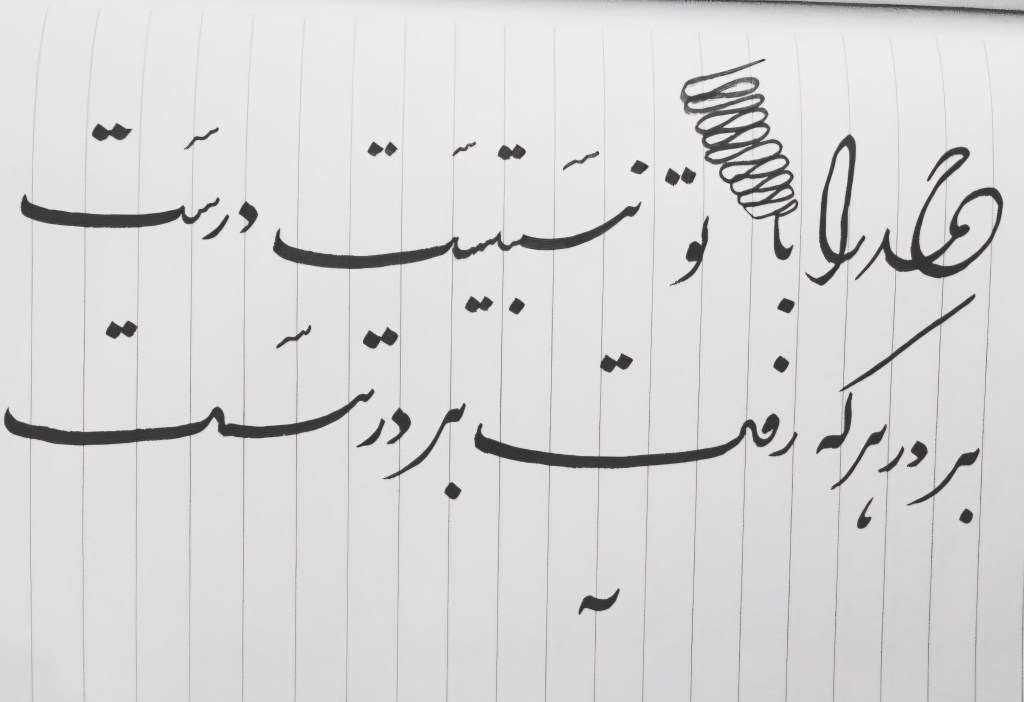 همه را با تو نسبتیست درست
بر در هر که رفت بر در تست